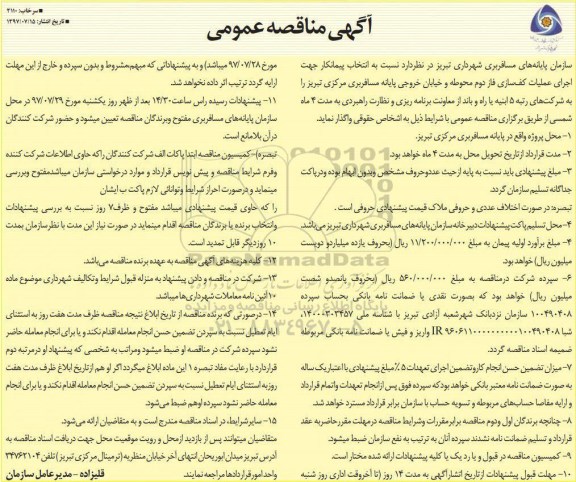 سرخاب: ۳۱۱۰
تاریخ انتشار: ۱۳۹۷/۰۷/۱۵
آگهی مناقصه عمومی
سازمان پایانه‌های مسافربری شهرداری تبریز در نظردارد نسبت به انتخاب پیمانکار جهت
اجرای عملیات کف‌سازی فاز دوم محوطه و خیابان خروجی پایانه مسافربری مرکزی تبریز را
به شرکت‌های رتبه ۵ ابنیه یا راه و باند از معاونت برنامه ریزی و نظارت راهبردی به مدت ۴ ماه
شمسی از طریق برگزاری مناقصه عمومی با شرایط ذیل به اشخاص حقوقی واگذار نماید.
۱- محل پروژه واقع در پایانه مسافربری مرکزی تبریز.
۲- مدت قرارداد از تاریخ تحویل محل به مدت ۴ ماه خواهد بود.
۳- مبلغ پیشنهادی باید نسبت به پایه از حیث عدد و حروف مشخص و بدون ابهام بوده و در پاکت
جداگانه تسلیم سازمان گردد.
تبصره: در صورت اختلاف عددی و حروفی ملاک قیمت پیشنهادی حروفی است.
۴- محل تسلیم پاکت پیشنهادات دبیرخانه سازمان پایانه‌های مسافربری شهرداری تبریز می‌باشد.
۴- مبلغ برآورد اولیه پیمان به مبلغ ۱۱/۲۰۰/۰۰۰/۰۰۰ ریال (بحروف یازده میلیارد و دویست
میلیون ریال) خواهد بود.
۶- سپرده شرکت در مناقصه به مبلغ ۵۶۰/۰۰۰/۰۰۰ ریال (بحروف پانصد و شصت
میلیون ریال) خواهد بود که بصورت نقدی یا ضمانت نامه بانکی بحساب سپرده
۱۰۰۴۹۰۴۰۸ سازمان نزد بانک شهر شعبه آزادی تبریز با شناسه ملی ۱۴۰۰۰۳۰۳۴۵۷،
شبا IR ۹۶۰۶۱۱۰۰۰۰۰۰۰۰۱۰۰۴۹۰۴۰۸ واریز و فیش یا ضمانت نامه بانکی مربوطه
ضمیمه اسناد مناقصه گردد.
۷- میزان تضمین حسن انجام کار و تضمین اجرای تعهدات ۵٪ مبلغ پیشنهادی با اعتبار یک ساله
به صورت ضمانت نامه معتبر بانکی خواهد بود که سپرده فوق پس از انجام تعهدات و اتمام قرارداد
و ارایه مفاصا حساب‌های مربوطه و تسویه حساب با سازمان برابر قرارداد مسترد خواهد شد.
۸- چنانچه برندگان اول و دوم مناقصه برابر مقررات و شرایط مناقصه در مهلت مقرر حاضر به عقد
قرارداد و تسلیم ضمانت نامه نشدند سپرده آنان به ترتیب به نفع سازمان ضبط میشود.
۹- کمیسیون مناقصه در قبول و یا رد یک یا کلیه پیشنهادات ارائه شده مختار است.
۱۰- مهلت قبول پیشنهادات از تاریخ انتشار آگهی به مدت ۱۴ روز (تا آخر وقت اداری روز شنبه
مورخ ۹۷/۰۷/۲۸ میباشد) و به پیشنهاداتی که مبهم، مشروط و بدون سپرده و خارج از این مهلت
ارایه گردد ترتیب اثر داده نخواهد شد.
۱۱- پیشنهادات رسیده راس ساعت ۱۴/۳۰ بعد از ظهر روز یکشنبه مورخ ۹۷/۰۷/۲۹ در محل
سازمان پایانه‌های مسافربری مفتوح و برندگان مناقصه تعیین میشود و حضور شرکت کنندگان
در آن بلامانع است.
تبصره)- کمیسیون مناقصه ابتدا پاکات الف شرکت کنندگان را که حاوی اطلاعات شرکت کننده
و فرم شرایط مناقصه و پیش نویس قرارداد و موارد درخواستی سازمان میباشد مفتوح و بررسی
مینماید و در صورت احراز شرایط و توانائی لازم پاکت ب ایشان
را که حاوی قیمت پیشنهادی میباشد مفتوح و ظرف ۷ روز نسبت به بررسی پیشنهادات
و انتخاب برنده یا برندگان مناقصه اقدام مینماید در صورت نیاز این مدت با نظر سازمان بمدت
۱۰ روز دیگر قابل تمدید است.
۱۲- کلیه هزینه‌های آگهی مناقصه به عهده برنده مناقصه می‌باشد.
۱۳- شرکت در مناقصه و دادن پیشنهاد به منزله قبول شرایط و تکالیف شهرداری موضوع ماده
۱۰ آئین نامه معاملات شهرداری‌ها میباشد.
۱۴- در صورتی که برنده مناقصه از تاریخ ابلاغ نتیجه مناقصه ظرف مدت هفت روز به استثنای
ایام تعطیل نسبت به سپردن تضمین حسن انجام معامله اقدام نکند و یا برای انجام معامله حاضر
نشود سپرده شرکت در مناقصه او ضبط میشود و مراتب به شخصی که پیشنهاد او در مرتبه دوم
قرار دارد با رعایت مفاد تبصره ۱ این ماده ابلاغ میگردد اگر او هم از تاریخ ابلاغ ظرف مدت هفت
روز به استثنای ایام تعطیل نسبت به سپردن تضمین حسن انجام معامله اقدام نکند و یا برای انجام
معامله حاضر نشود سپرده او هم ضبط می‌شود.
۱۵- سایر شرایط، در اسناد مناقصه مندرج است و به متقاضیان ارائه می‌شود.
متقاضیان میتوانند پس از بازدید از محل و رویت موقعیت محل جهت دریافت اسناد مناقصه به
آدرس تبریز میدان ابوریحان انتهای آخر خیابان منظریه (ترمینال مرکزی تبریز) تلفن ۳۴۷۶۲۱۰۴
واحد امور قراردادها مراجعه نمایند.
قلیزاده - مدیرعامل سازمان